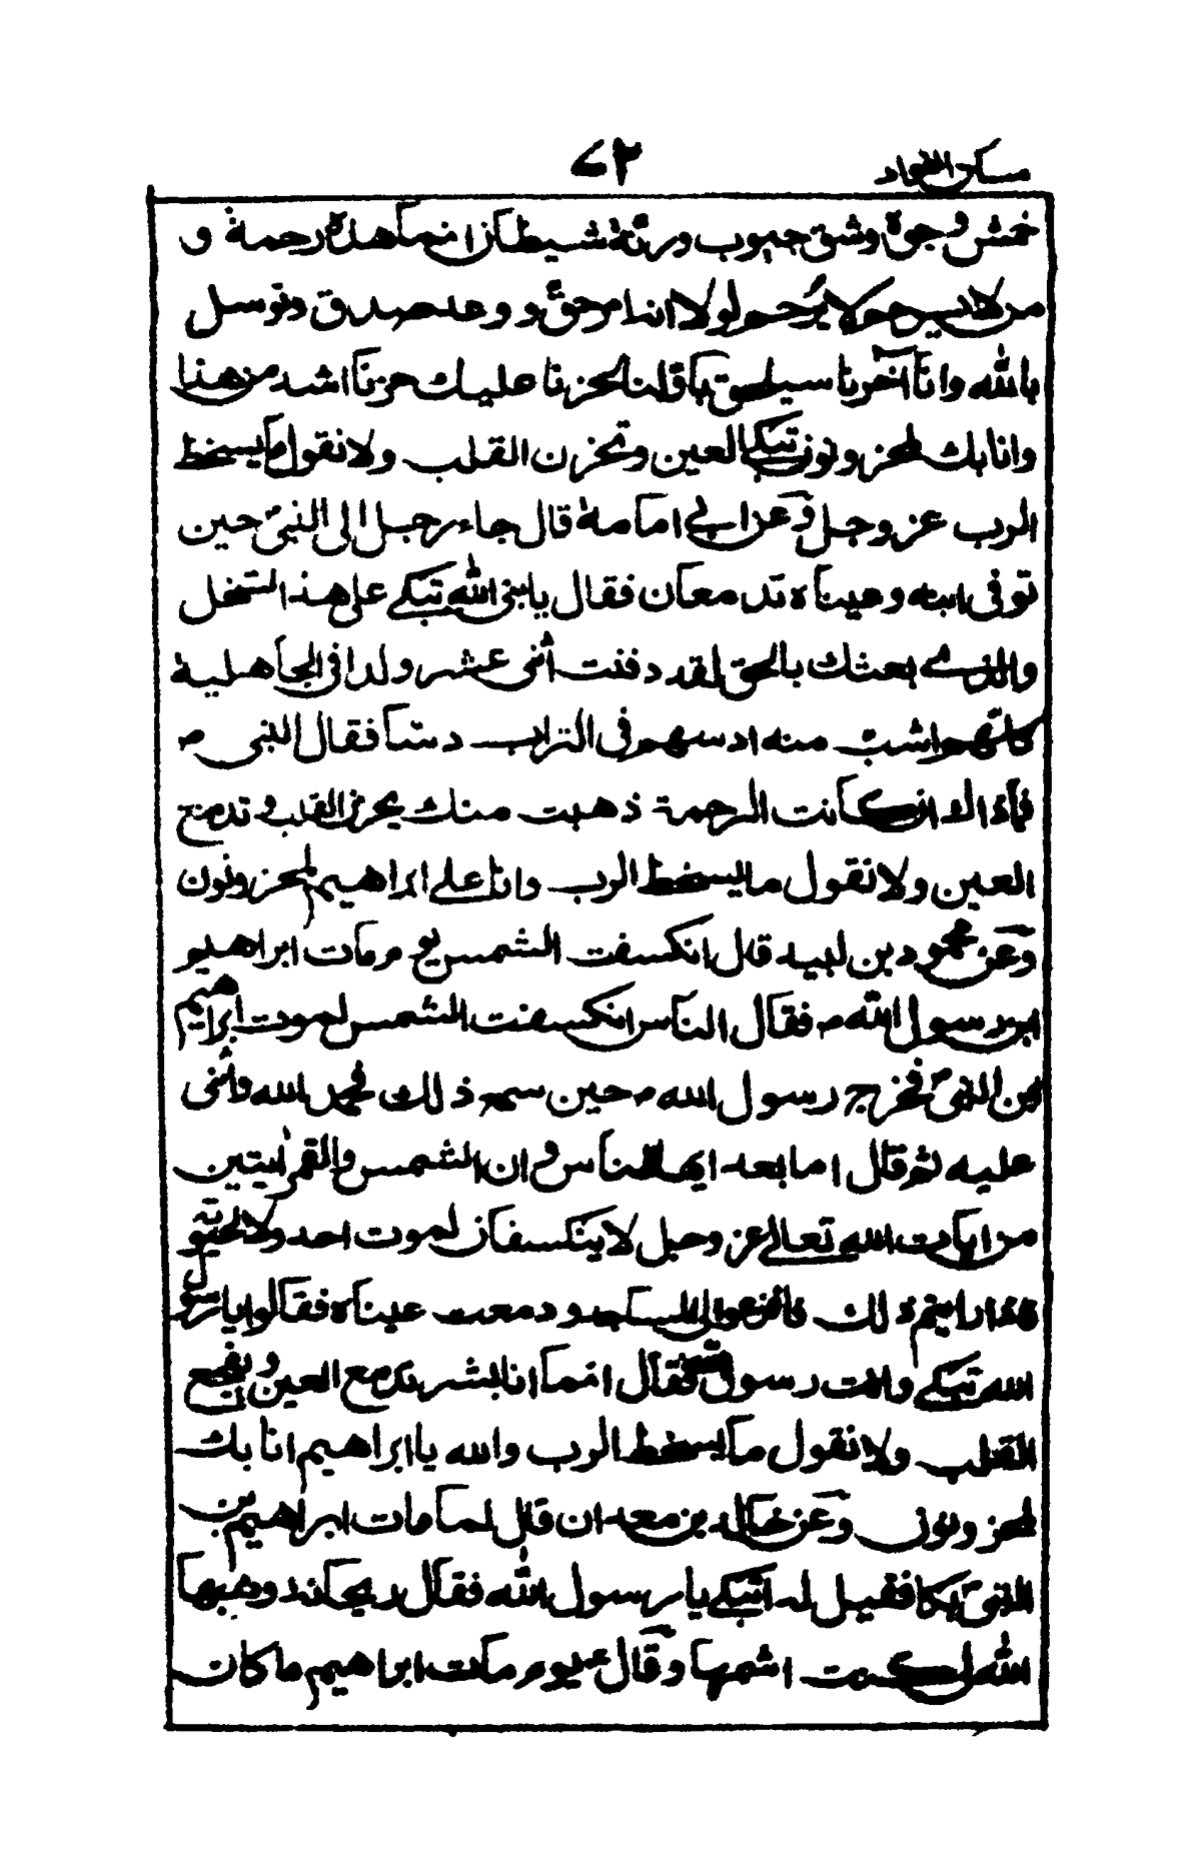 مسكن الفؤاد
٧٢
خمش وجوه وشق جيوب ورنّة شيطان انما هذه رحمة و
من لا يرحم لا يُرحم لولا انه امر حقّ ووعد صدق وتوسل
بالله وانّ آخرنا سيلحق باوّلنا لحزنا عليك حزنا اشد من هذا
وانا بك لمحزونون تبكي العين وتحزن القلب ولا نقول ما يسخط
الرب عز وجل وعن ابي امامة قال جاء رجل الى النبيّ حين
توفى ابنه وعيناه تدمعان فقال يا نبى الله تبكي على هذ السخل
والذي بعثك بالحق لقد دفنت أثنى عشر ولدا فى الجاهلية
كلهم اشبّ منه ادسهم فى التراب دسّا فقال النبى ص
فماذا ان كانت الرحمة ذهبت منك يحزن القلب وتدمع
العين ولا نقول ما يسخط الرب وانا على ابراهيم لمحزونون
وعن محمود بن لبيد قال انكسفت الشمس يوم مات ابراهيم
ابن رسول الله ص فقال الناس انكسفت الشمس لموت ابراهيم
بن النبيّ فخرج رسول الله ص حين سمع ذلك فحمد الله وأثنى
عليه ثم قال اما بعد ايها الناس ان الشمس والقمر ايتين
من ايات الله تعالى عز وجل لا ينكسفان لموت احد ولا لحيوته
فاذا رايتم ذلك فافزعوا الى المساجد ودمعت عيناه فقالوا يا رسول
الله تبكي وانت رسول الله فقال انما انا بشر تدمع العين ويفجع
القلب ولا نقول ما يسخط الرب والله يا ابراهيم انا بك
لمحزونون وعن خالد بن معدان قال لما مات ابراهيم بن
النبيّ بكا فقيل له اتبكي يا رسول الله فقال ريحانة وهبها
الله لى كنت اشمها وقال يوم مات ابراهيم ما كان